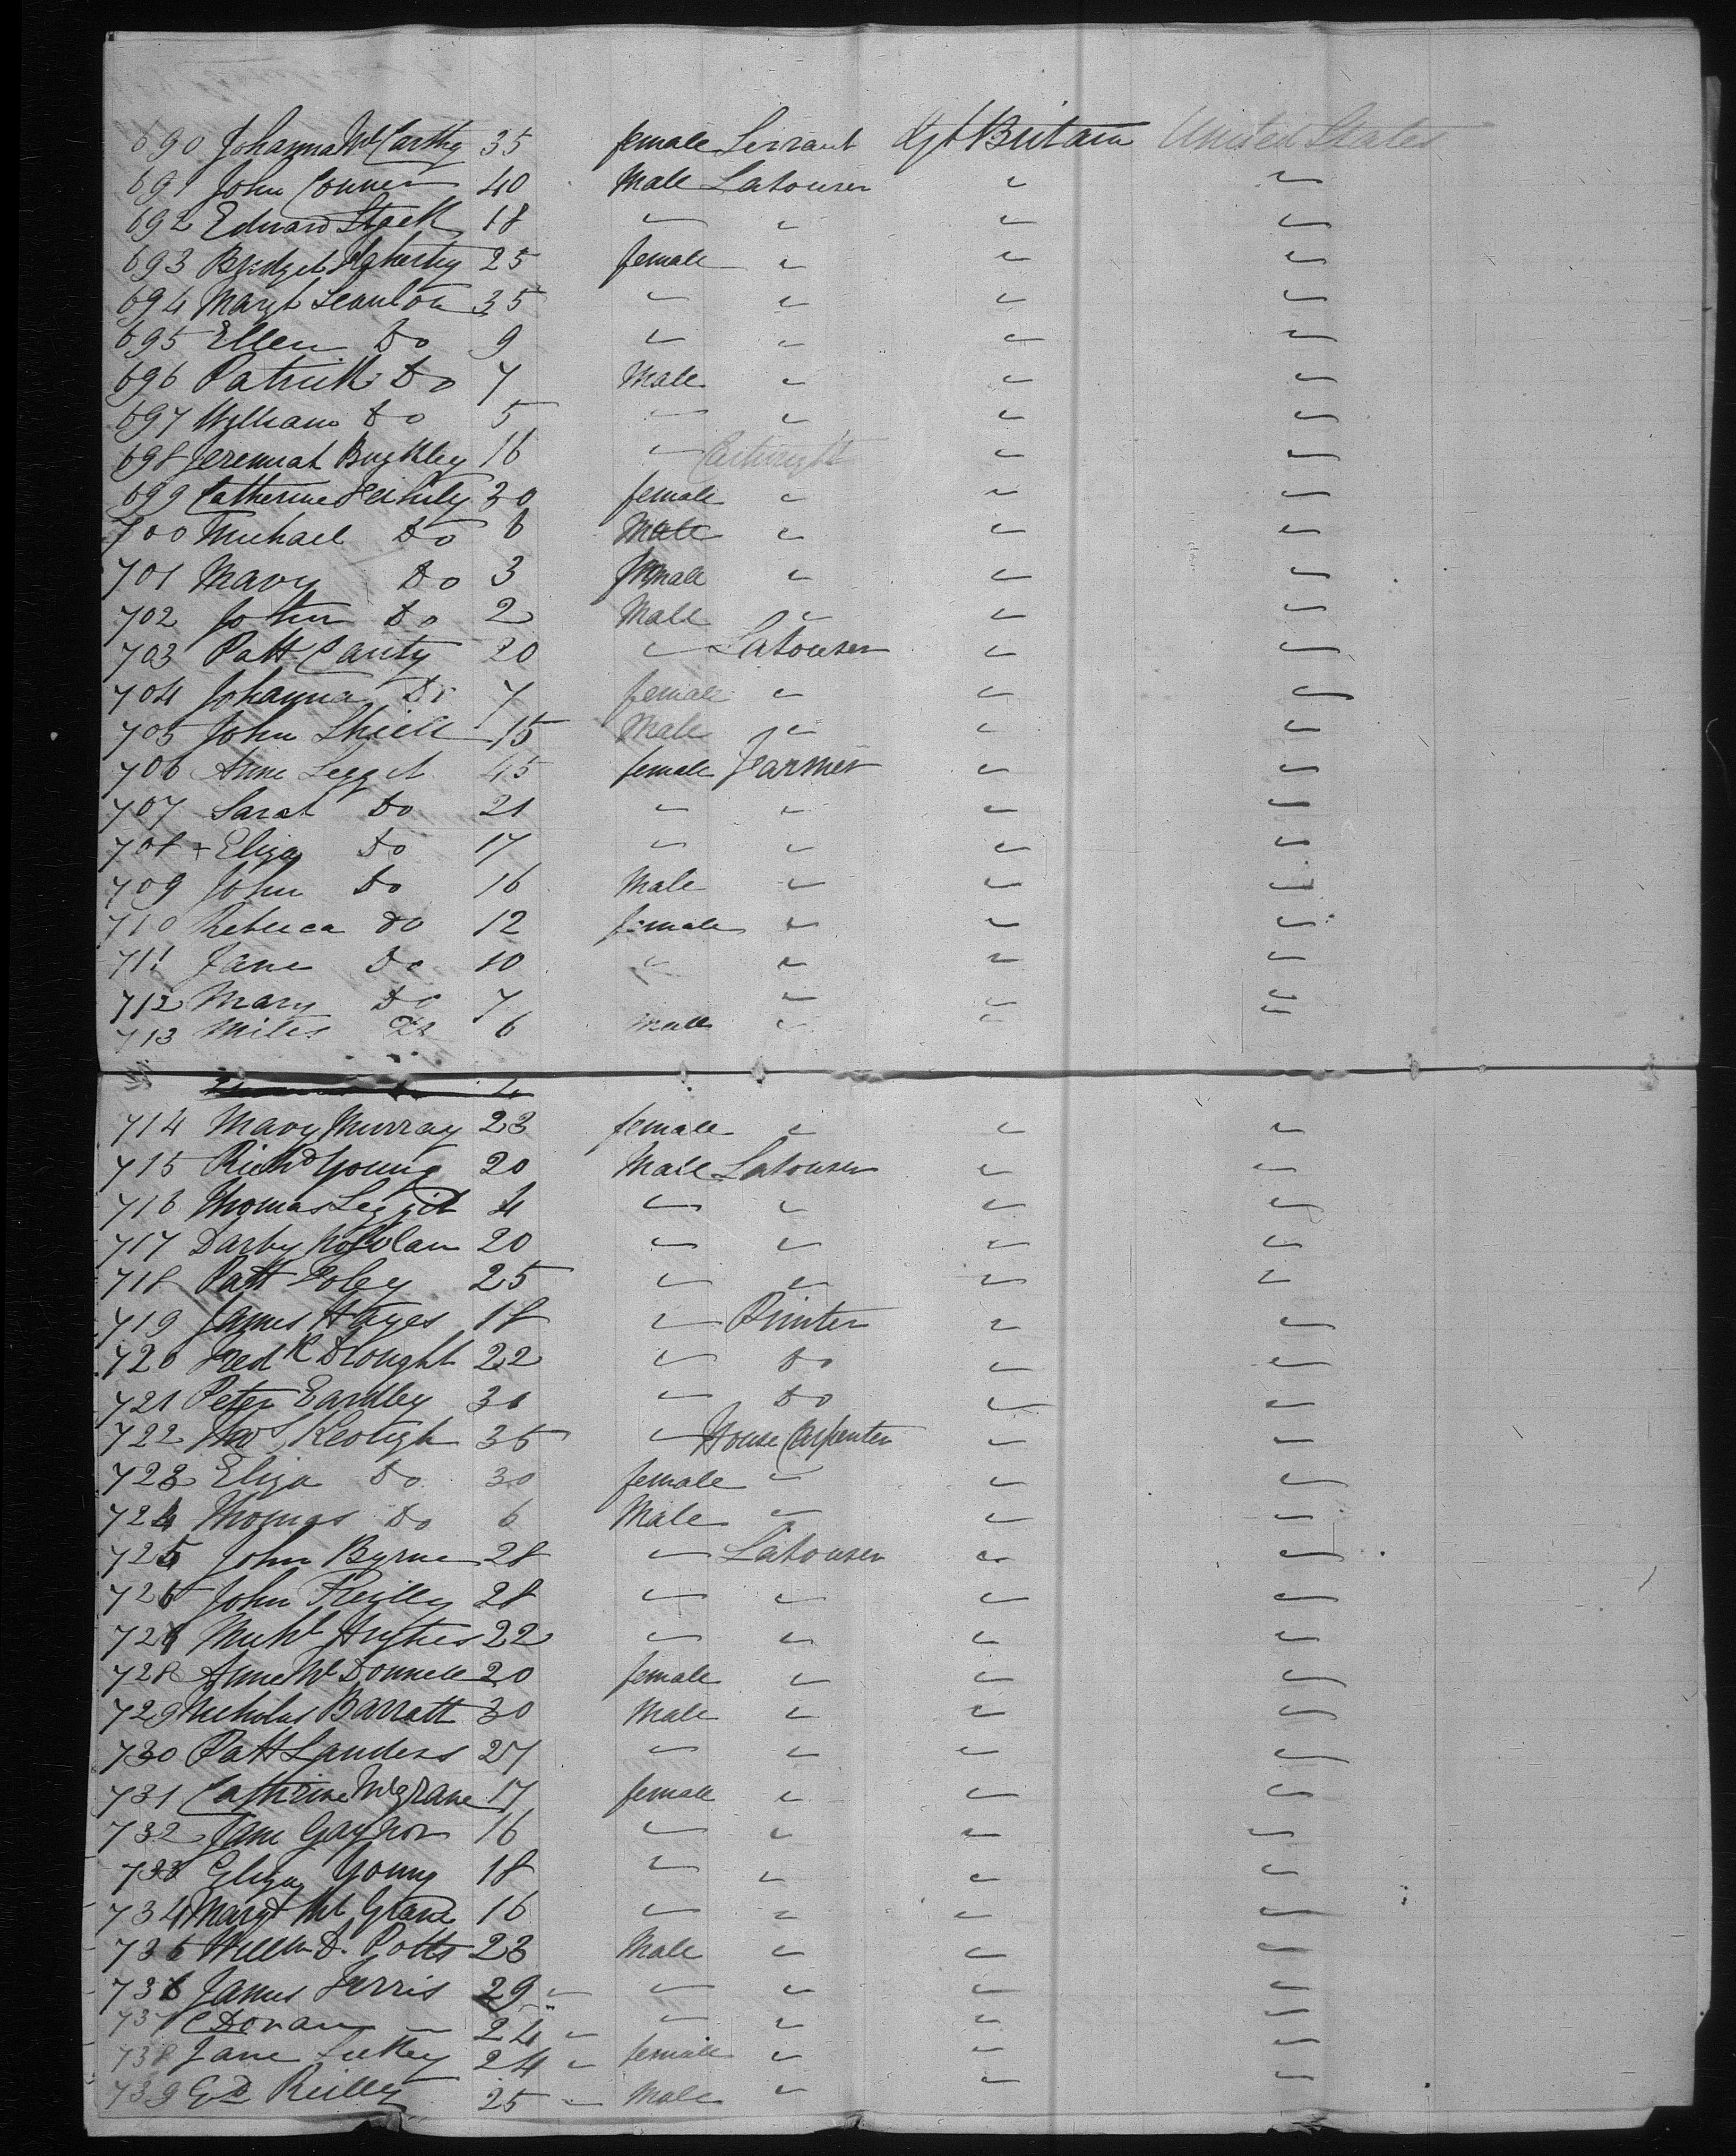 690 Johanna McCarthy 35 female Servant Gt Britain United States
691 John Conner 40 Male Labourer " "
692 Edward Stack 18 " " " "
693 Bridget Doherty 25 female " " "
694 Margt Scanlon 35 " " " "
695 Ellen Do 9 " " " "
696 Patrick Do 7 Male " " "
697 William Do 5 " " " "
698 Jeremiah Buckley 16 " Cartwright " "
699 Catherine 30 female " " "
700 Michael Do 6 Male " " "
701 Mary Do 3 female " " "
702 John Do 2 Male " " "
703 Patt Canty 20 " Labourer " "
704 Johanna Do 7 female " " "
705 John Shiell 15 Male " " "
706 Anne Legget 45 female Farmer " "
707 Sarah Do 21 " " " "
708 + Eliza Do 17 " " " "
709 John Do 16 Male " " "
710 Rebecca Do 12 female " " "
711 Jane Do 10 " " " "
712 Mary Do 7 " " "
713 Miles Do 6 Male " " "
714 Mary Murray 23 female " " "
715 Richd Young 20 Male Labourer " "
716 Thomas Leggit 4 " " " "
717 Darby 20 " " " "
718 Patt Foley 25 " " " "
719 James Hayes 18 " Printer " "
720 Fredk Drought 22 " Do " "
721 Peter Eardley 30 " Do " "
722 Thos Keough 35 " House Carpenter " "
723 Eliza Do 30 female " " "
724 Thomas Do 6 Male " " "
725 John Byrne 28 " Labourer " "
726 John Reilly 28 " " " "
727 Michl Hughes 22 " " " "
728 Anne McDonnell 20 female " " "
729 Nicholas Barratt 30 Male " " "
730 Patt Landers 27 " " " "
731 Catherine McGrane 17 female " " "
732 Jane Gaynor 16 " " " "
733 Eliza Young 18 " " " "
734 Margt McGrane 16 " " " "
735 Willm D. Potts 23 Male " " "
736 James Ferris 29 " " " " "
737 C Doran 24 " " " " "
738 Jane 24 " female " " "
739 Ed Reilly 25 " Male " " "